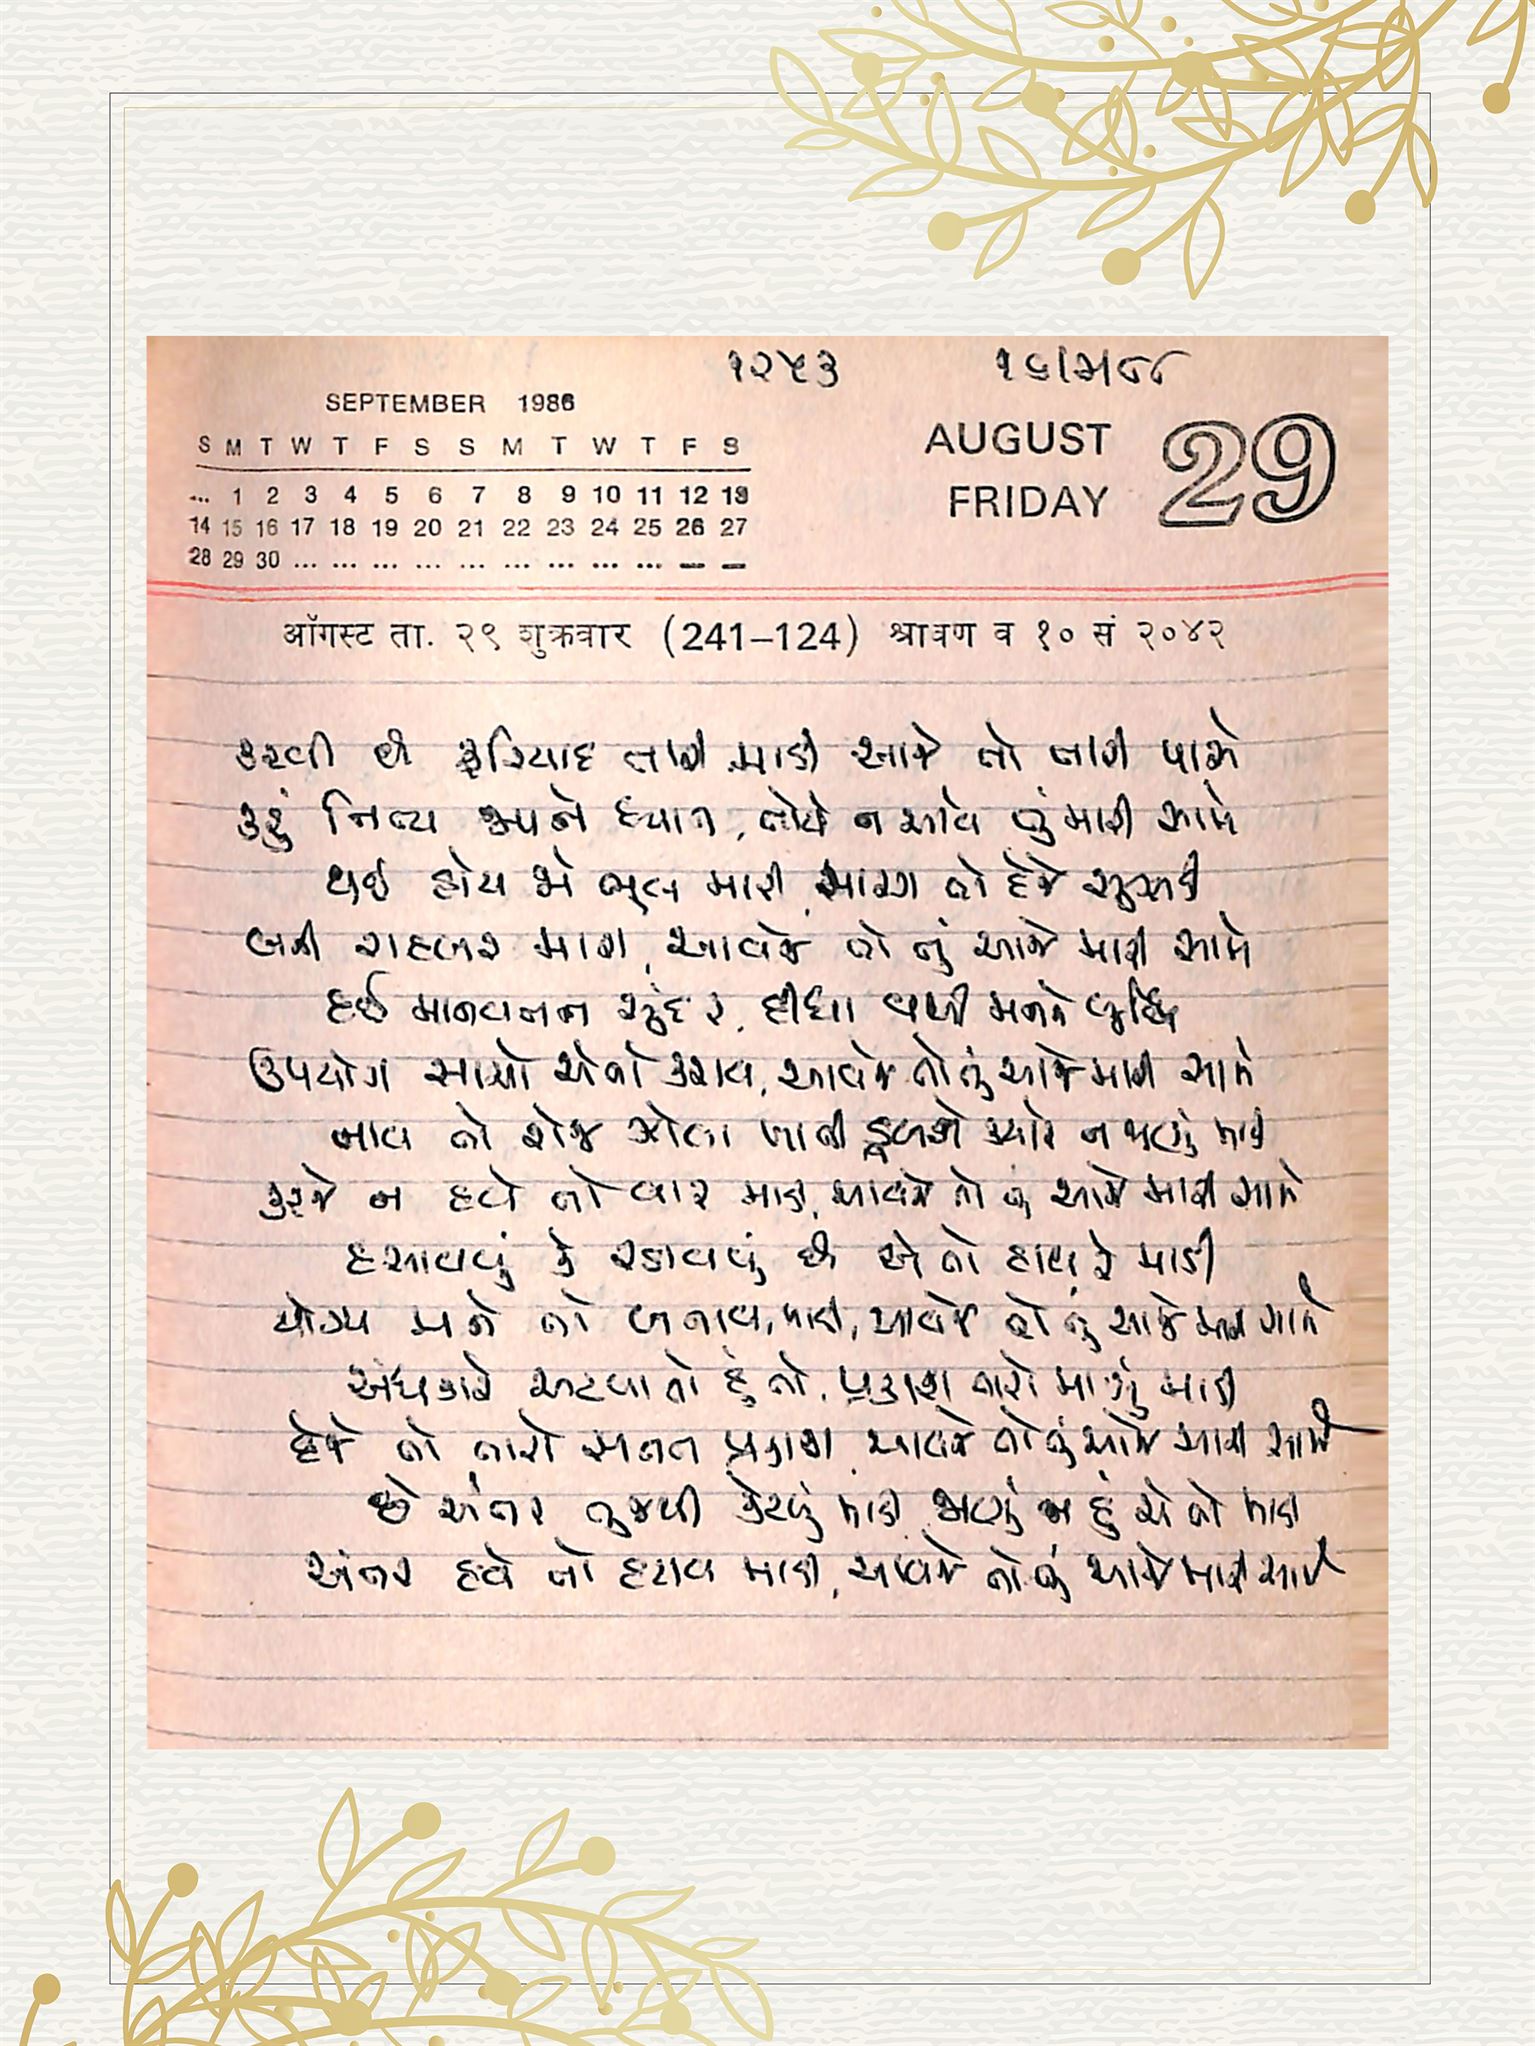 ૧૨૫૩
SEPTEMBER 1986
S M T W T F S S M T W T F S
... 1 2 3 4 5 6 7 8 9 10 11 12 13
14 15 16 17 18 19 20 21 22 23 24 25 26 27
28 29 30 ... ... ... ... ... ... ... ... ... — —
AUGUST
FRIDAY
29
ऑगस्ट ता. २९ शुक्रवार (241–124) श्रावण व १० सं २०४२
કરવી છે ફરિયાદ તારી માડી આજે તો તારી પાસે
કરું નિત્ય જપને ધ્યાન, તોયે ન આવે તું મારી સામે
થઈ હોય જો ભૂલ મારી, માતા તો દેજે સુઝાડી
બની રાહબર મારી, આવજે તો તું આજે મારી સામે
દઈ માનવતન સુંદર, દીધા વળી મનને બુદ્ધિ
ઉપયોગ સાચો એનો કરાવ, આવજે તો તું આજે મારી સામે
નાવ તો રોજ ઝોલા ખાતી ડૂબશે ક્યારે ન જાણું માડી
કરજે ન હવે તો વાર માડી, આવજે તો તું આજે મારી સામે
હસાવવું કે રડાવવું છે એ તો હાથ રે માડી
યોગ્ય મને તો બનાવ, માડી, આવજે તો તું આજે મારી સામે
અંધકારે અટવાતો હું તો, પ્રકાશ તારો માગું માડી
દેજે તો તારો સતત પ્રકાશ, આવજે તો તું આજે મારી સામે
છે અંતર તુજથી કેટલું માડી, જાણું ન હું એ તો માડી
અંતર હવે તો હટાવ માડી, આવજે તો તું આજે મારી સામે